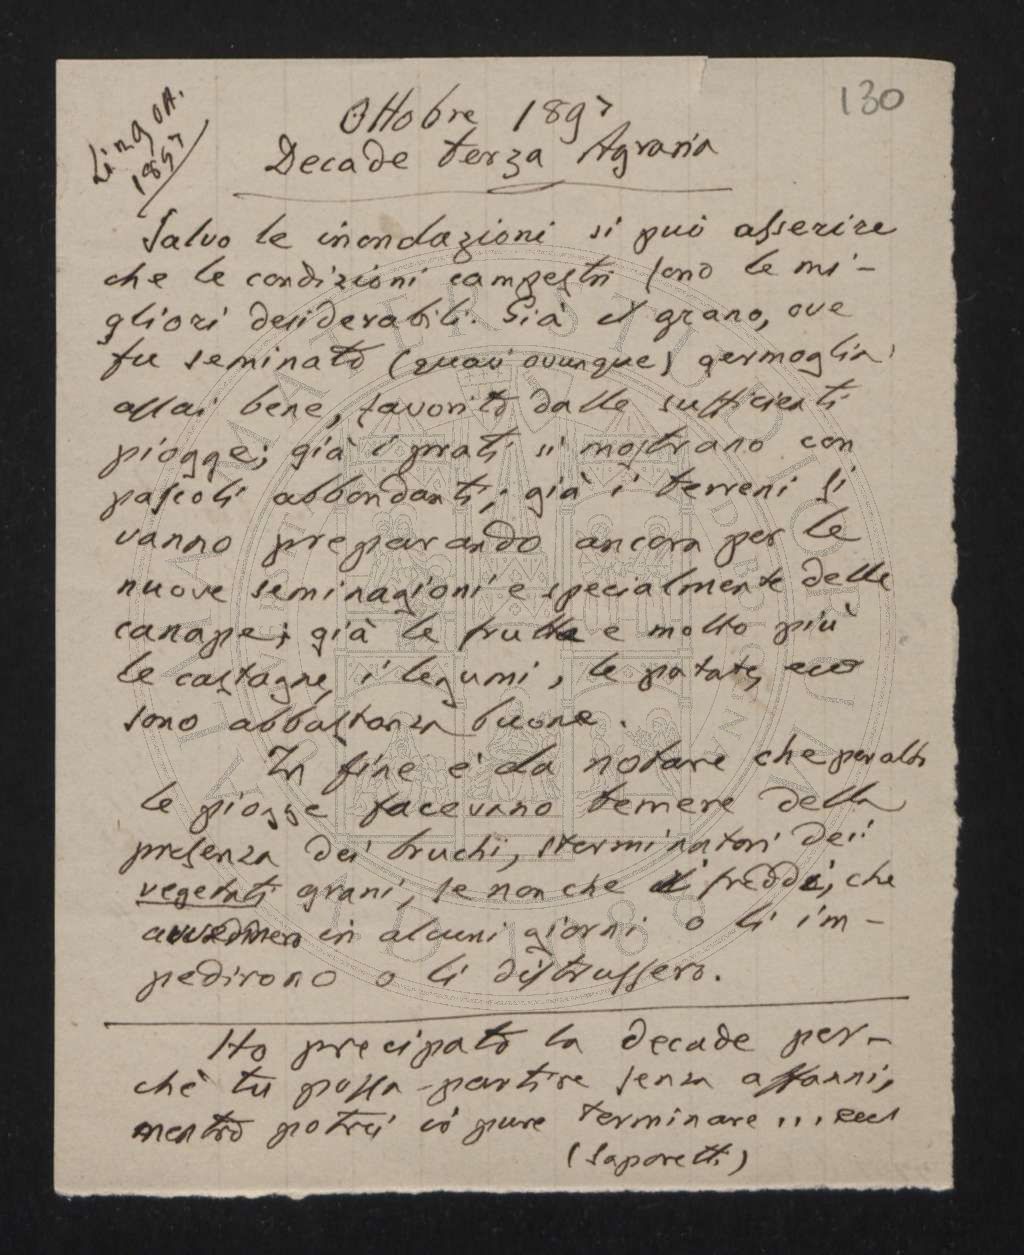 130
Ottobre 1897
Decade terza Agraria
1897
Salvo le inondazioni si può asserire
che le condizioni campestri sono le mi-
gliori desiderabili. Già il grano, ove
fu seminato (quasi ovunque) germoglia
assai bene, favorito dalle sufficienti
piogge; già i prati si mostrano con
pascoli abbondanti; già i terreni si
vanno preparando ancora per le
nuove seminagioni e specialmente delle
canape; già le frutta e molto più
le castagne, i legumi, le patate, ecc
sono abbastanza buone.
In fine è da notare che per altro
le piogge facevano temere della
presenza dei bruchi, sterminatori dei
vegetati grani, se non che i freddi, che
avvennero in alcuni giorni o li im-
pedirono o li distrussero.
Ho precipato la decade per-
chè tu possa partire senza affanni,
mentre potrei io pure terminare ... ecc
(Saporetti)
ALMA MATER STUDIORUM
A.D. 1088